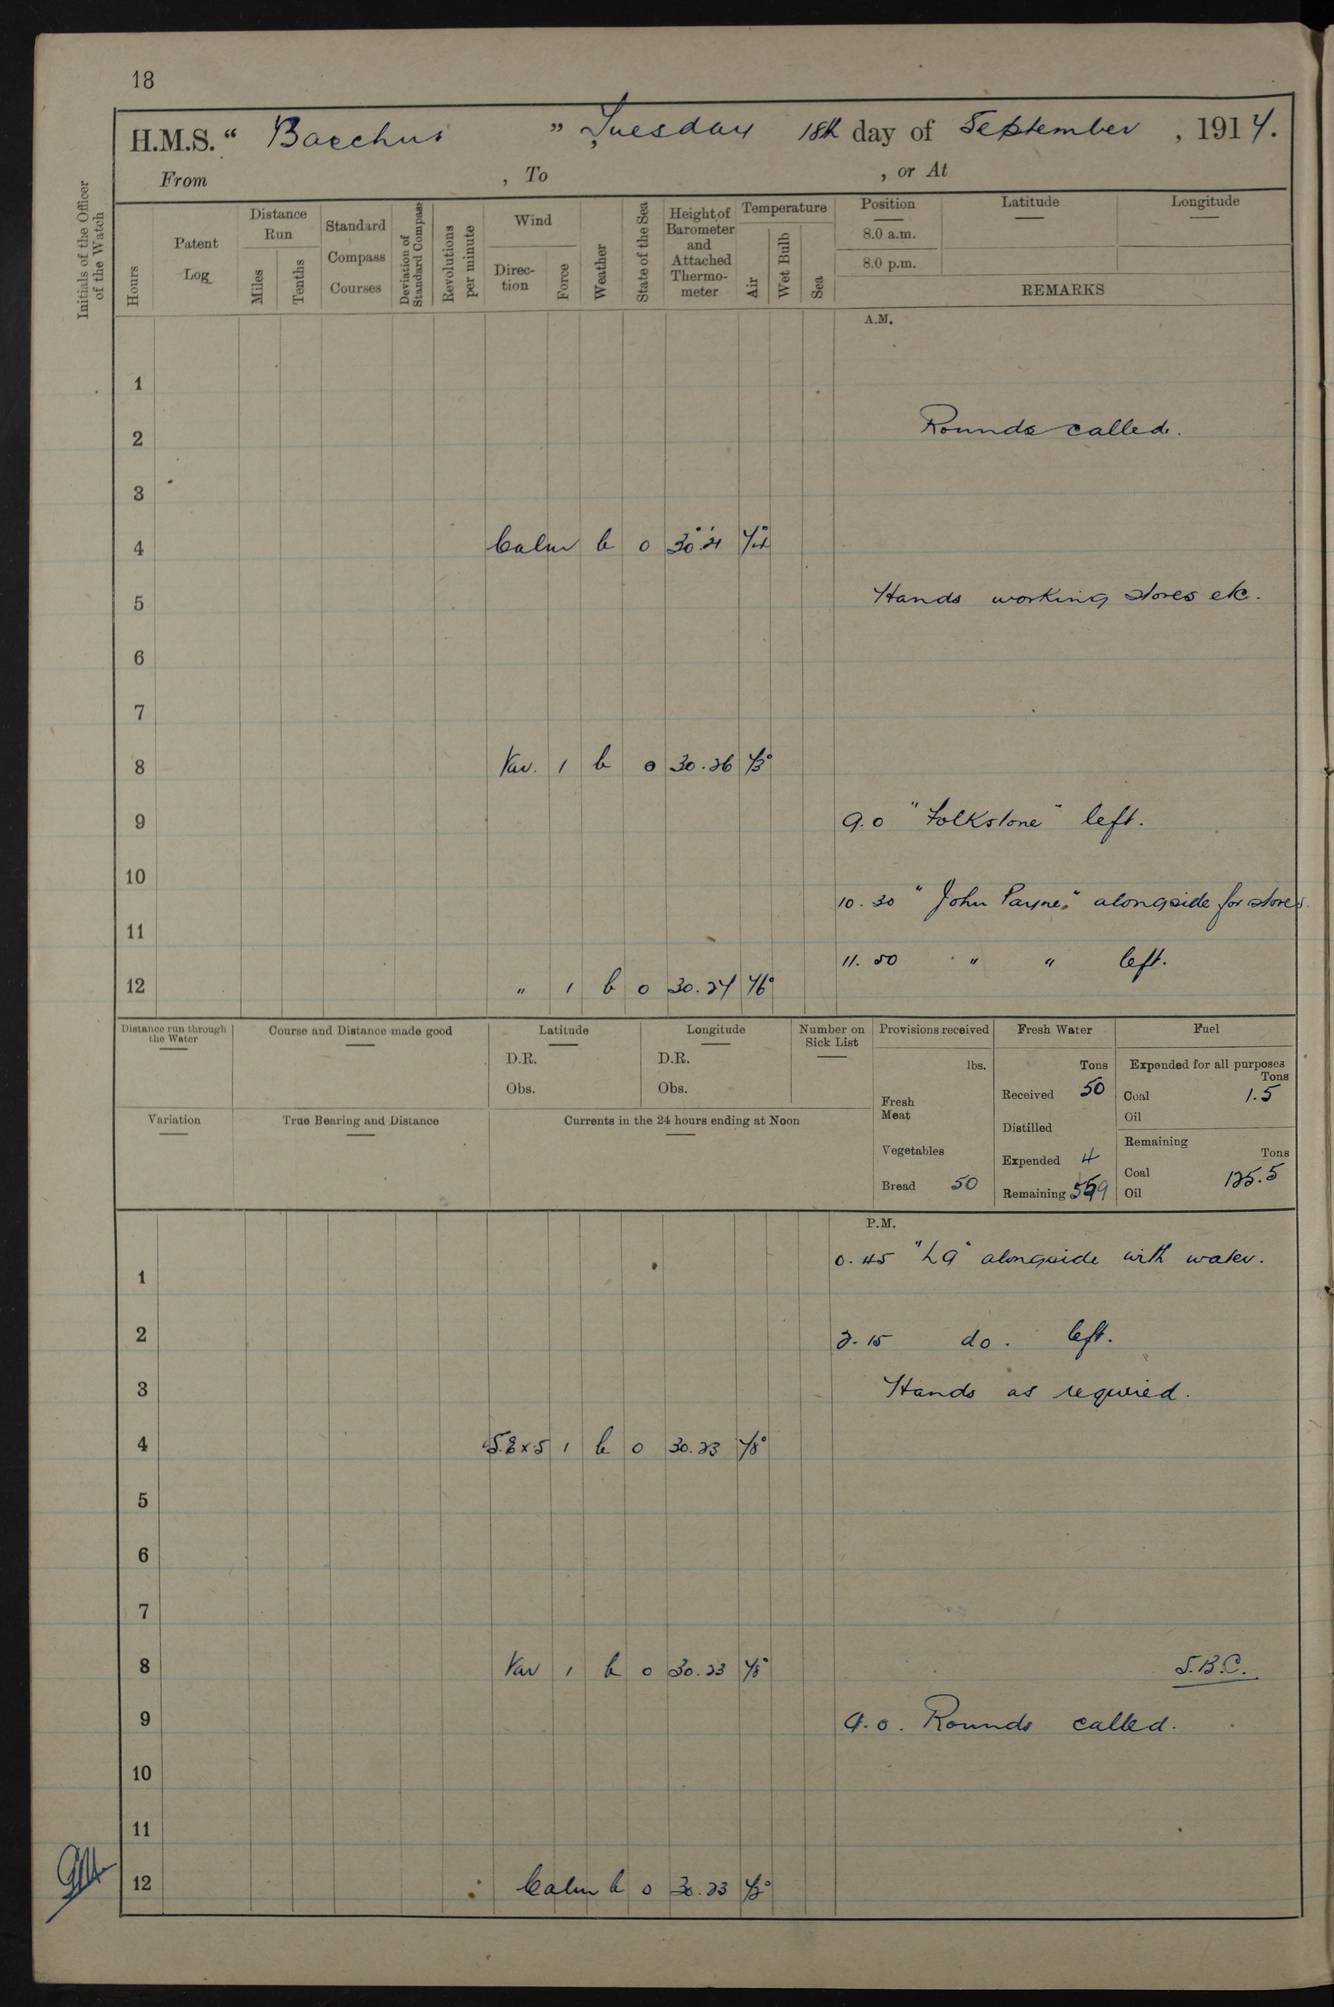 18
H.M.S. " Bacchus " , Tuesday 18th day of September , 1917.
From , To , or At
Initials of the Officer of the Watch
Hours
Patent Log
Distance Run
Miles
Tenths
Standard Compass Courses
Deviation of Standard Compass
Revolutions per minute
Wind
Direction
Force
Weather
State of the Sea
Height of Barometer and Attached Thermometer
Temperature
Air
Wet Bulb
Sea
Position
8.0 a.m.
8.0 p.m.
Latitude
Longitude
REMARKS
A.M.
1
2 Rounds called.
3
4 Calm b 0
5 Hands working stores etc.
6
7
8 Var. 1 b 0 30.26 73°
9 9.0 "Folkstone" left.
10
10.30 "John Payne" alongside for stores.
11
11.50 " " left.
12 " 1 b 0 30.27 76°
Distance run through the Water
Course and Distance made good
Latitude
D.R.
Obs.
Longitude
D.R.
Obs.
Number on Sick List
Variation
True Bearing and Distance
Currents in the 24 hours ending at Noon
Provisions received
lbs.
Fresh Meat
Vegetables
Bread 50
Fresh Water
Tons
Received 50
Distilled
Expended 4
Remaining
Fuel
Expended for all purposes
Tons
Coal 1.5
Oil
Remaining
Tons
Coal 125.5
Oil
P.M.
0.45 "L9" alongside with water.
1
2 2.15 do. left.
3 Hands as required.
4 S.E x S 1 b 0 30.23 78°
5
6
7
8 Var 1 b 0 30.23 75° S.B.C.
9 9.0. Rounds called.
10
11
12 Calm b 0 30.23 73°